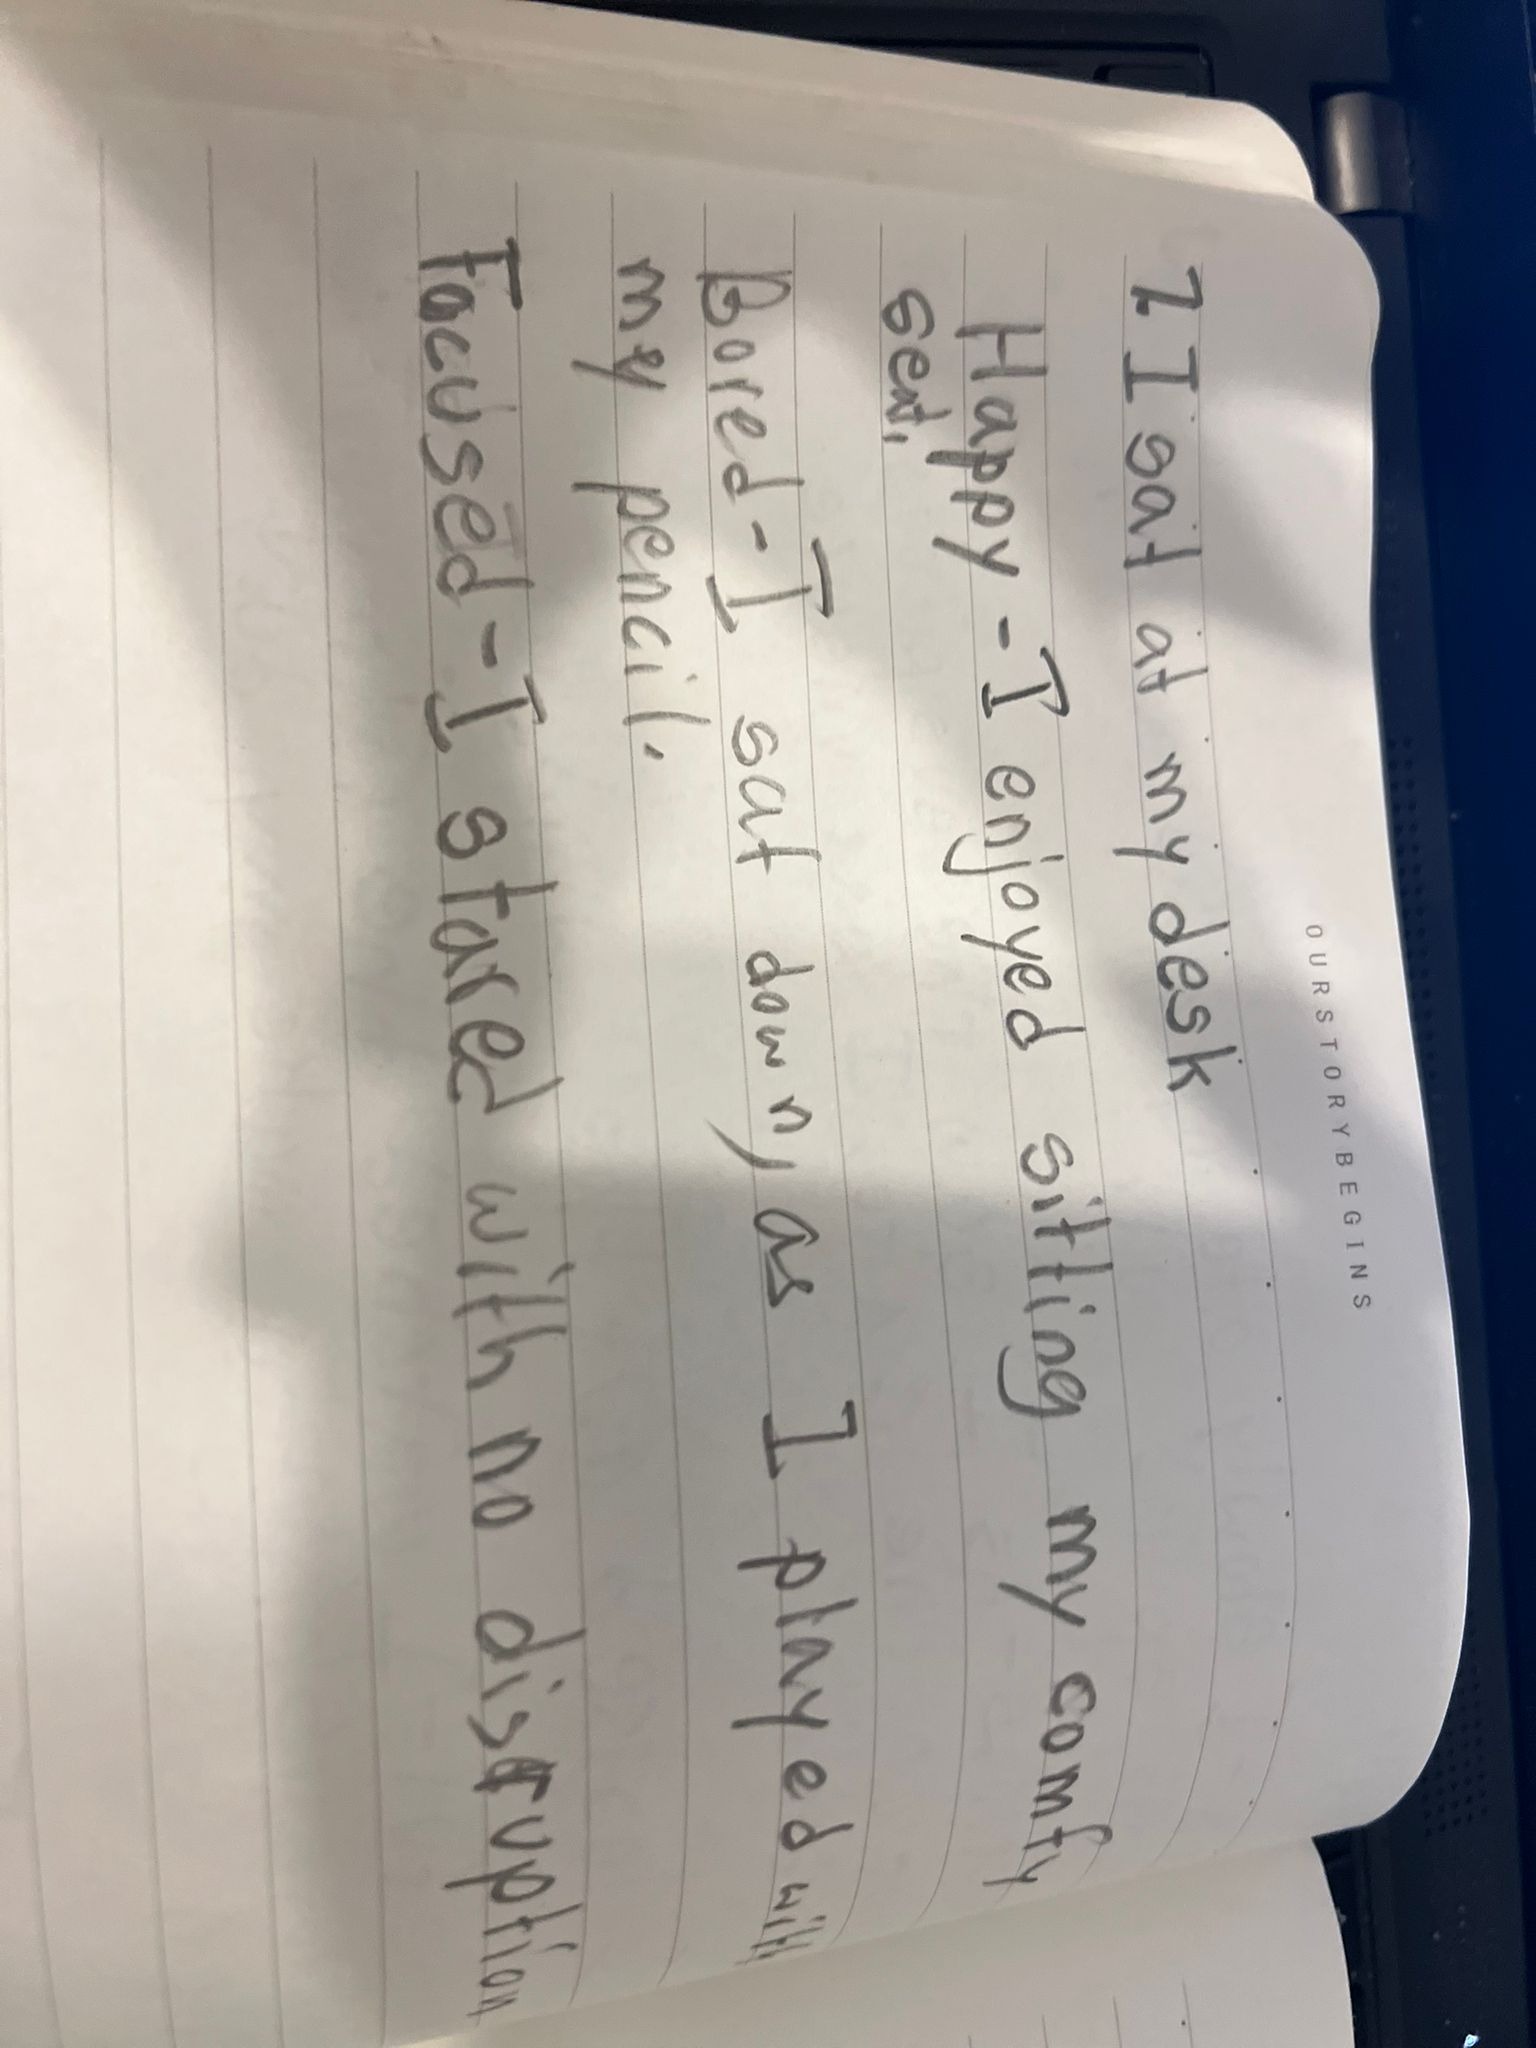 OURSTORYBEGINS
1 I sat at my desk
Happy - I enjoyed sitting my comfy
seat.
Bored - I sat down, as I played with
my pencil.
Focused - I stared with no disruption